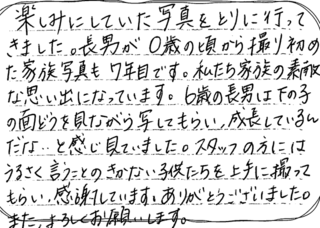 楽しみにしていた写真をとりに行って
きました。長男が0歳の頃から撮り初め
た家族写真も7年目です。私たち家族の素敵
な思い出になっています。6歳の長男は下の子
の面どうを見ながら写してもらい、成長しているん
だな…と感じ見ていました。スタッフの方には
うるさく言うことのきかない子供たちを上手に撮って
もらい、感謝しています。ありがとうございました。
また、よろしくお願いします。